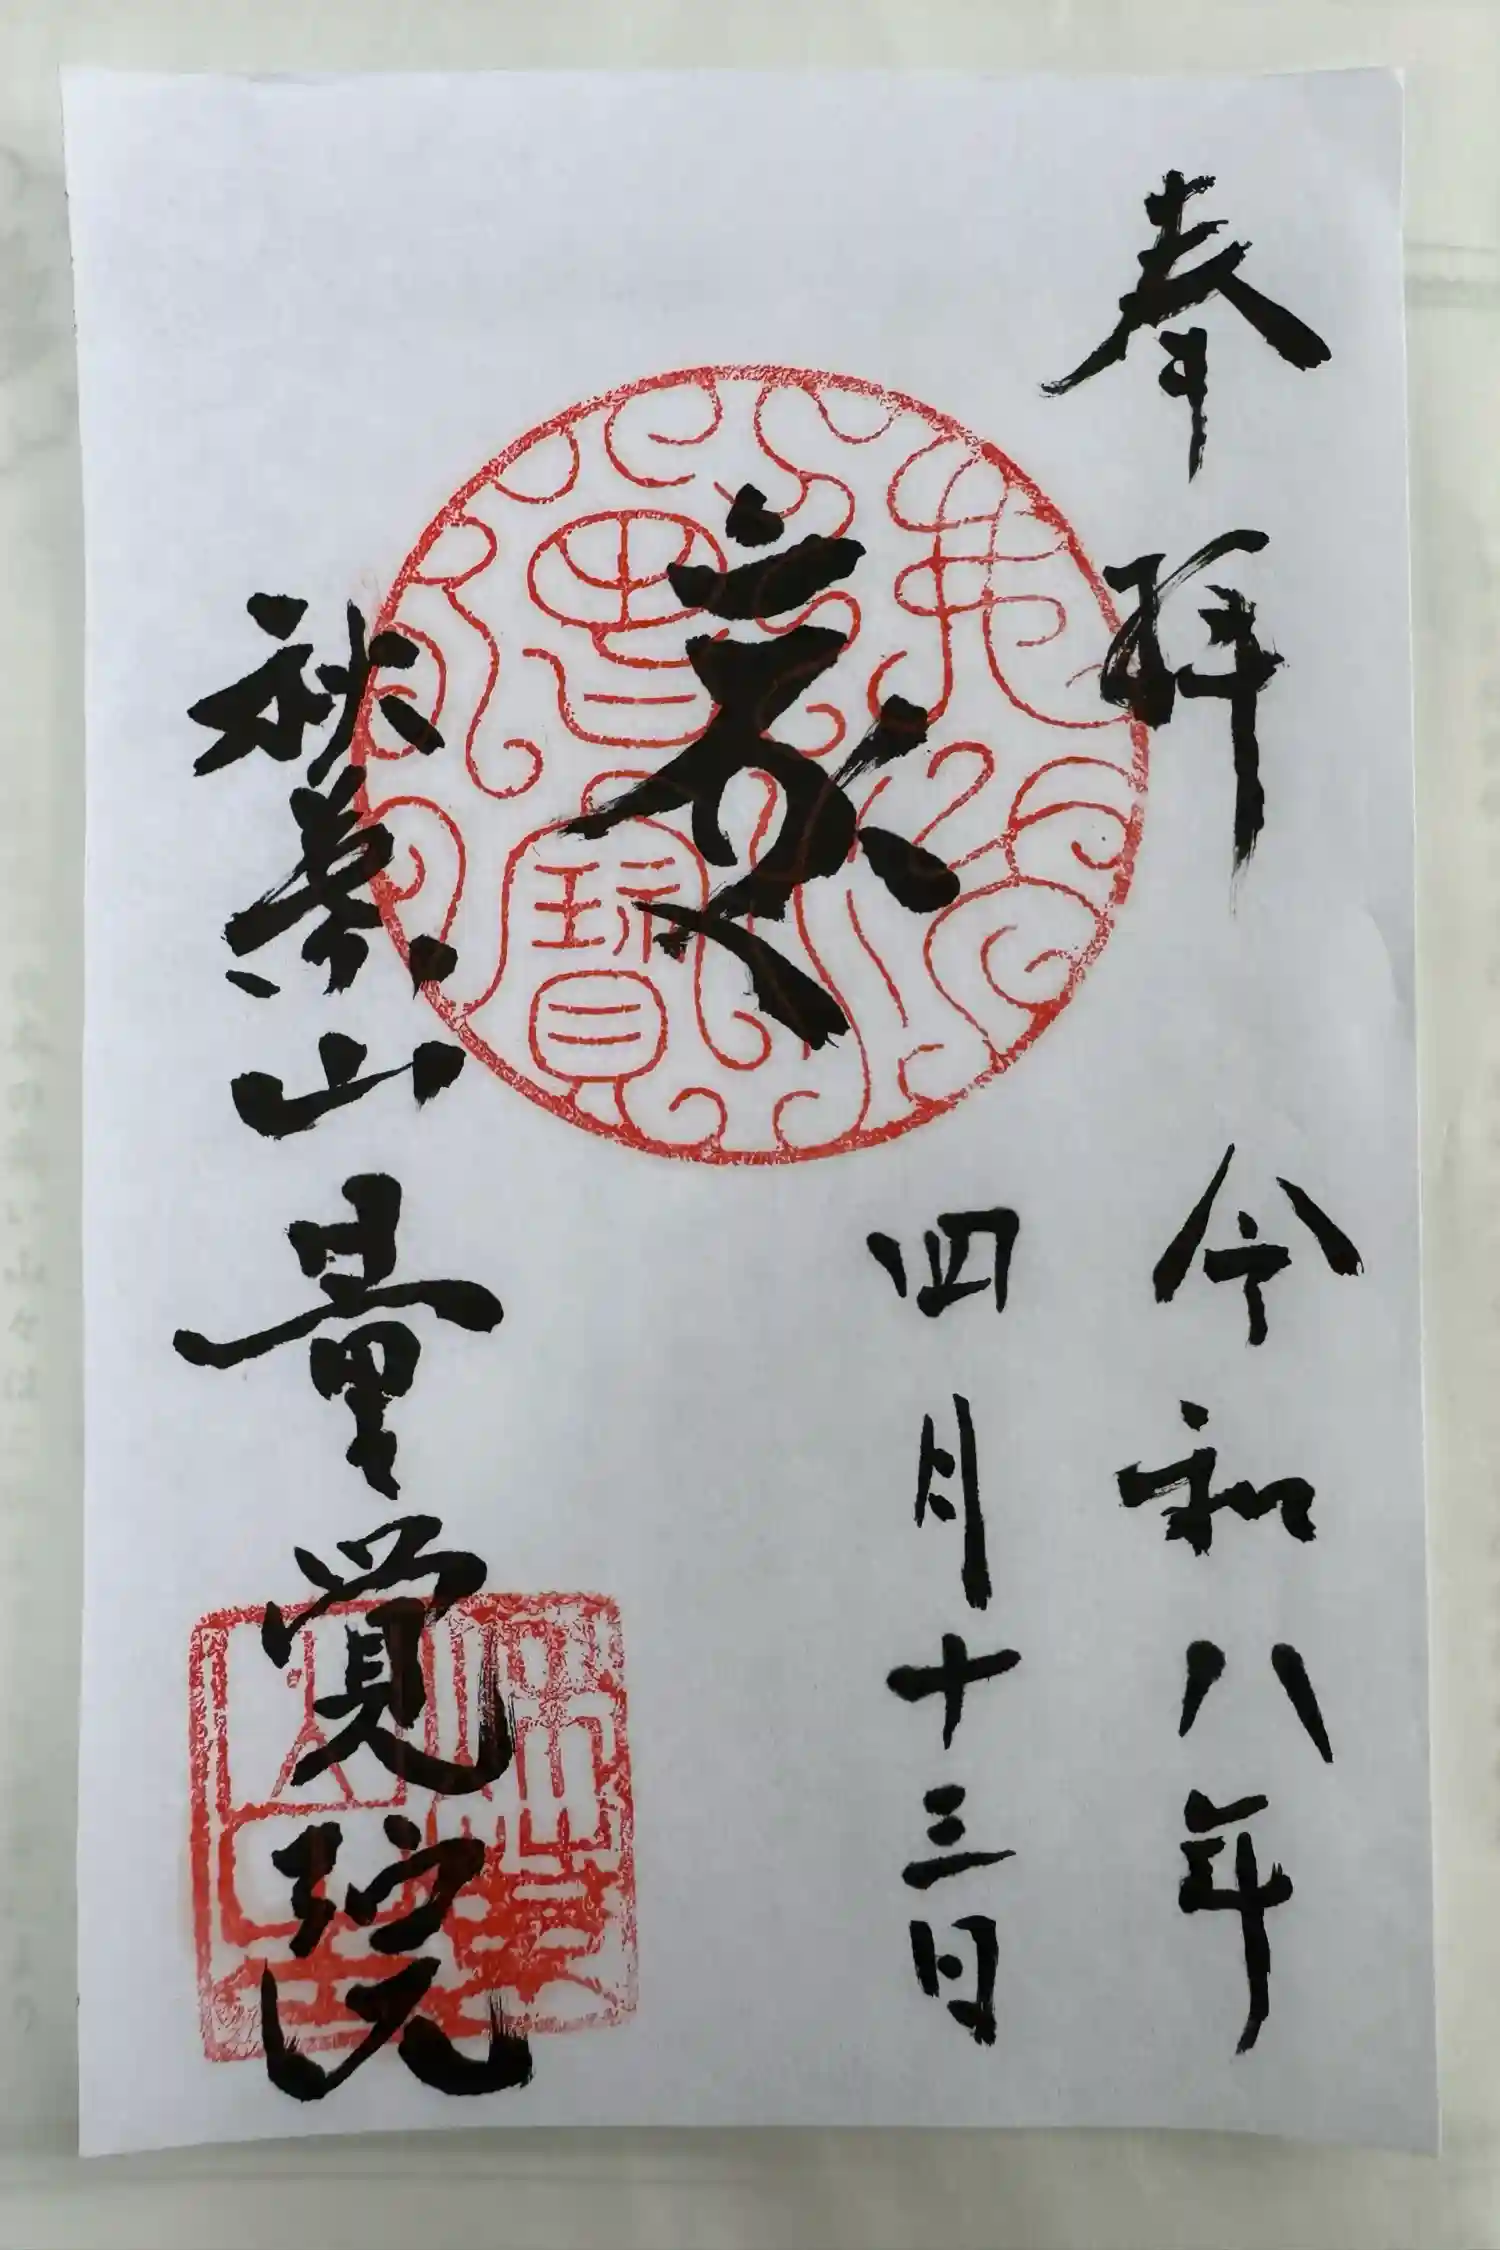 奉拝
令和八年
四月十三日
佛法
僧寶
秋葉山量覚院